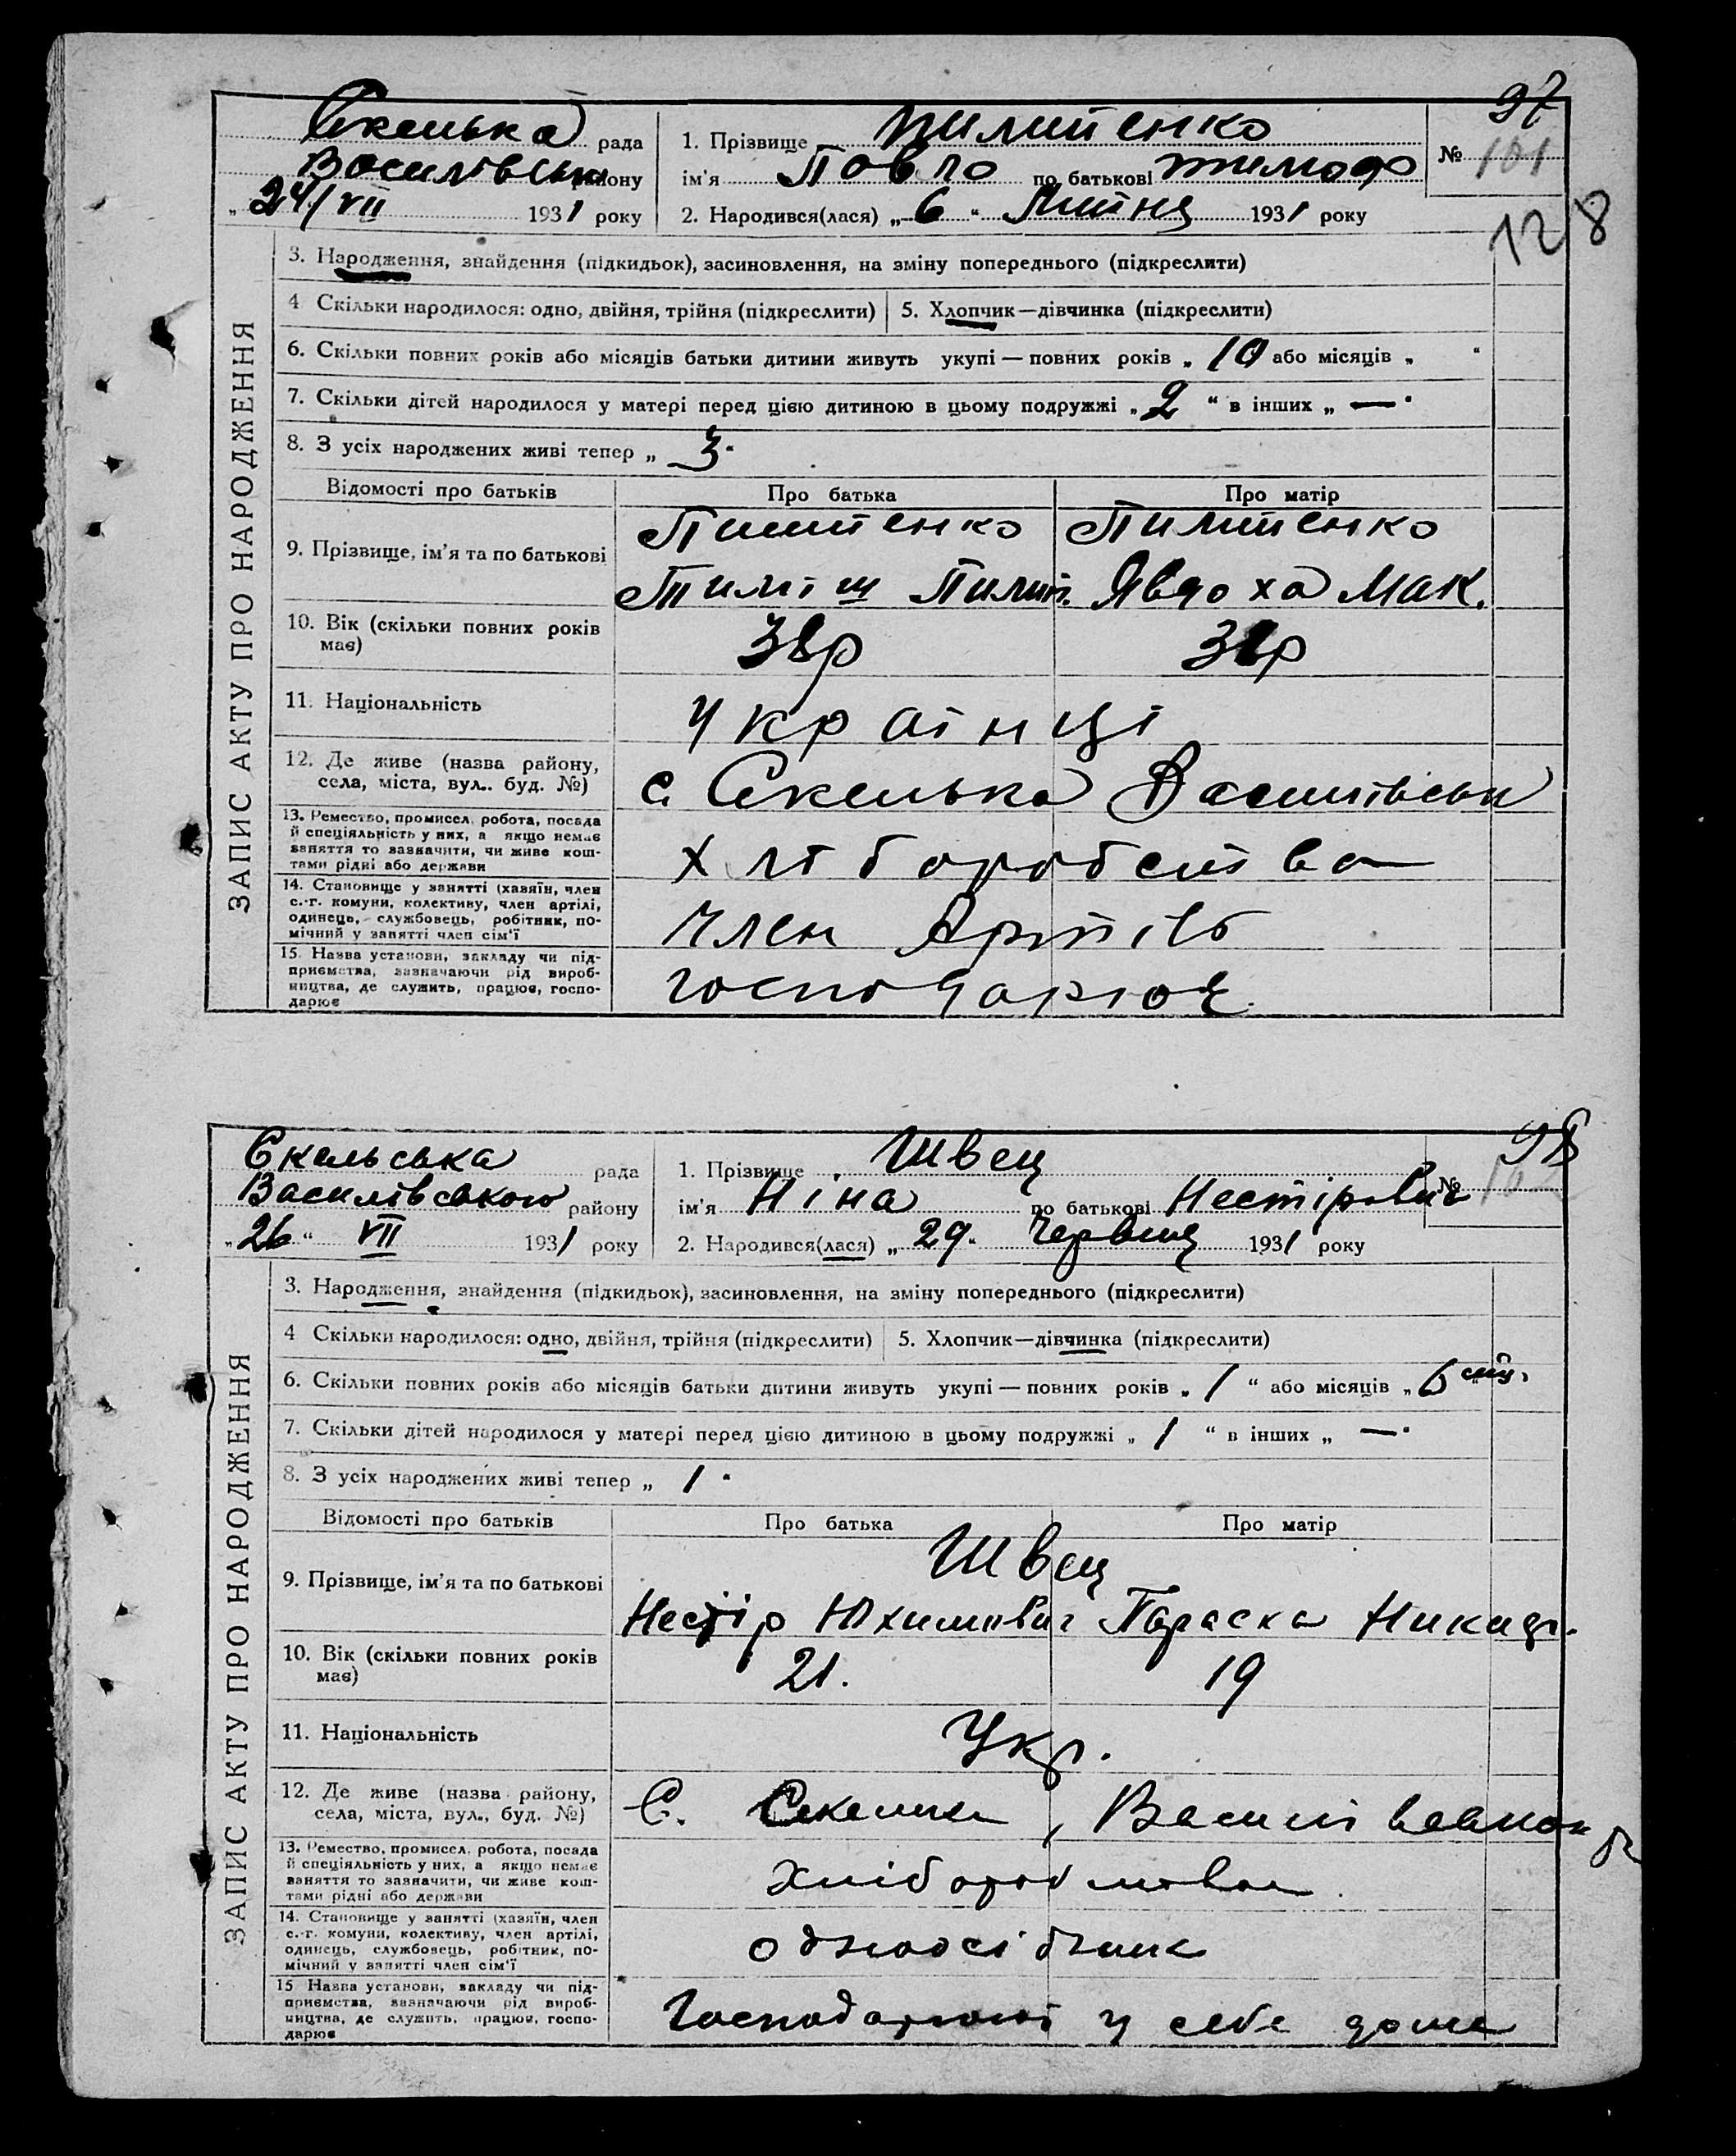 97
Скелька рада
1. Прізвище Пилипенко
№ 101
Василівськ району
ім'я Павло по батькові Тимоф
„24/VII 1931 року
2. Народився(лася) „6“ Липня 1931 року
128
ЗАПИС АКТУ ПРО НАРОДЖЕННЯ
3. Народження, знайдення (підкидьок), засиновлення, на зміну попереднього (підкреслити)
4 Скільки народилося: одно, двійня, трійня (підкреслити)
5. Хлопчик—дівчинка (підкреслити)
6. Скільки повних років або місяців батьки дитини живуть укупі — повних років „10 або місяців „ “
7. Скільки дітей народилося у матері перед цією дитиною в цьому подружжі „2“ в інших „—“
8. З усіх народжених живі тепер „3“
Відомості про батьків
Про батька
Про матір
9. Прізвище, ім'я та по батькові
Пилипенко
Тиміш Пилип.
Пилипенко
Явдоха Мак.
10. Вік (скільки повних років
має)
11. Національність
українці
12. Де живе (назва району,
села, міста, вул.. буд. №)
с. Скелька Василівськ
13. Ремество, промисел, робота, посада
й спеціяльність у них, а якщо немає
заняття то зазначити, чи живе кош-
тами рідні або держави
хліборобства
14. Становище у занятті (хазяїн, член
с.-г. комуни, колективу, член артілі,
одинець, службовець, робітник, по-
мічний у занятті член сім'ї
Член Артіль
15. Назва установи, закладу чи під-
приємства, зазначаючи рід вироб-
ництва, де служить, працює, госпо-
дарює
господарює
98
Скельська рада
1. Прізвище Швец
№
Василівського району
ім'я Ніна по батькові Нестірович
„26“ VII 1931 року
2. Народився(лася) „29“ Червня 1931 року
ЗАПИС АКТУ ПРО НАРОДЖЕННЯ
3. Народження, знайдення (підкидьок), засиновлення, на зміну попереднього (підкреслити)
4 Скільки народилося: одно, двійня, трійня (підкреслити)
5. Хлопчик—дівчинка (підкреслити)
6. Скільки повних років або місяців батьки дитини живуть укупі — повних років „1“ або місяців „6
7. Скільки дітей народилося у матері перед цією дитиною в цьому подружжі „1“ в інших „—“
8. З усіх народжених живі тепер „1“
Відомості про батьків
Про батька
Про матір
Швец
9. Прізвище, ім'я та по батькові
Нестір Юхимович
Параска Никиф.
10. Вік (скільки повних років
має)
21.
19
11. Національність
Укр.
12. Де живе (назва району,
села, міста, вул., буд. №)
С. Скельки, Василівського
13. Ремество, промисел, робота, посада
й спеціяльність у них, а якщо немає
заняття то зазначити, чи живе кош-
тами рідні або держави
Хліборобство
14. Становище у занятті (хазяїн, член
с.-г. комуни, колективу, член артілі,
одинець, службовець, робітник, по-
мічний у занятті член сім'ї
одноосібник
15 Назва установи, закладу чи під-
приємства, зазначаючи рід вироб-
ництва, де служить, працює, госпо-
дарює
Господарюють у себе дома